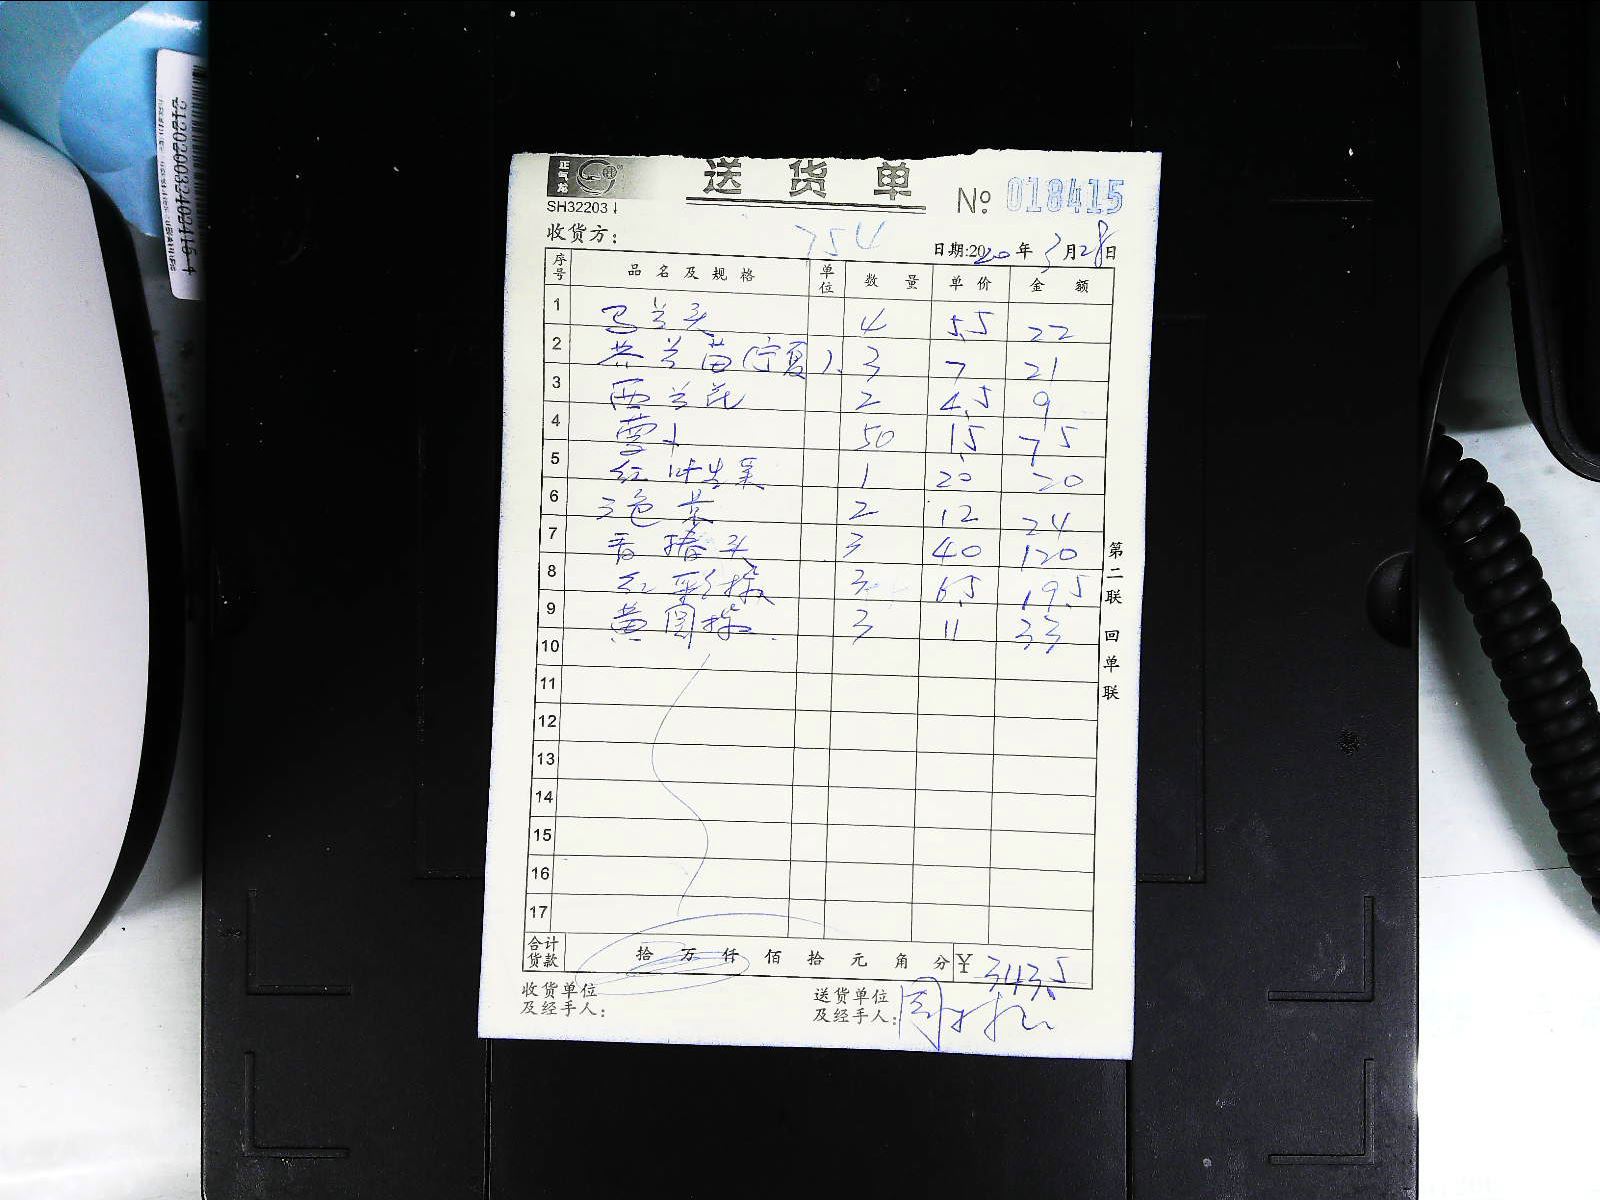 312020200324094154
正气龙
送货单
SH32203
№ 018415
收货方: 754
日期:2020年3月28日
序号 品名及规格 单位 数量 单价 金额
1 马兰头 4 5.5 22
2 芥兰苗(宁夏) 3 7 21
3 西兰花 2 4.5 9
4 萝卜 50 1.5 75
5 红叶生菜 1 20 20
6 三色菜 2 12 24
7 香椿头 3 40 120
8 红彩椒 3 6.5 19.5
9 黄圆椒 3 11 33
10
11
12
13
14
15
16
17
合计货款 拾 万 仟 佰 拾 元 角 分 ¥ 343.5
收货单位及经手人:
送货单位及经手人:
第二联 回单联